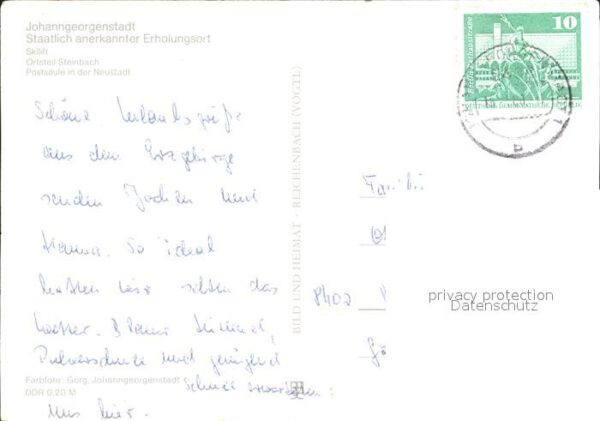 Johanngeorgenstadt
Staatlich anerkannter Erholungsort
Skilift
Ortsteil Steinbach
Postsäule in der Neustadt
10
Schöne Urlaubsgrüße
aus dem Erzgebirge
senden Jochen und
Hanna. So ideal
hatten wir selten das
Wetter. Blauer Himmel,
Pulverschnee und genügend
Schnee erwarteten
uns hier.
BILD UND HEIMAT · REICHENBACH (VOGTL)
8402
privacy protection
Datenschutz
Farbfoto: Görg, Johanngeorgenstadt
DDR 0,20 M